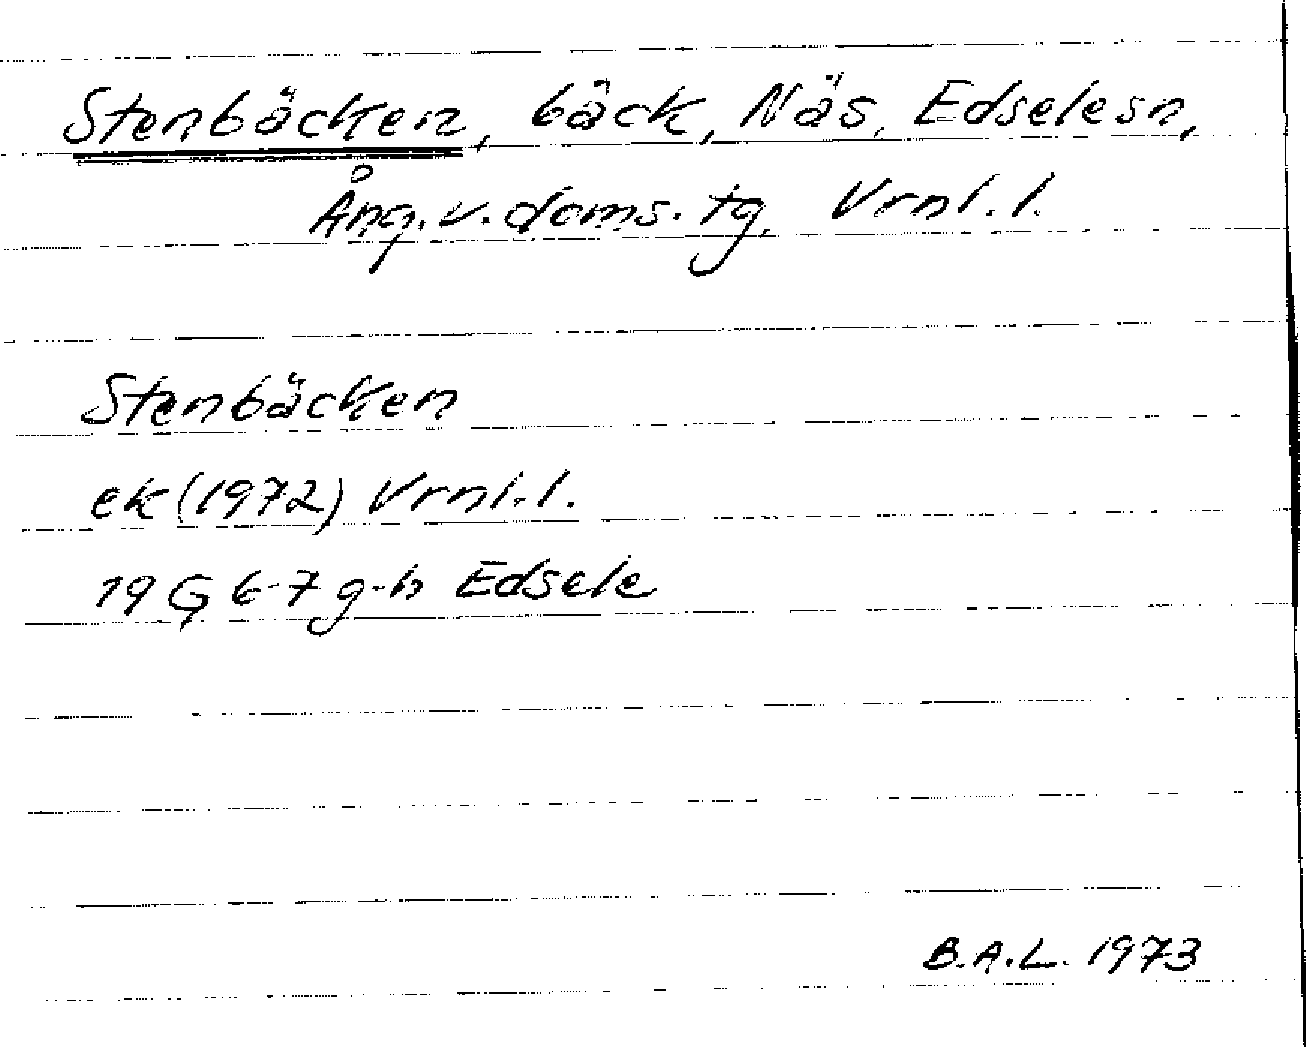 Stenbäcken, bäck, Näs, Edselesn,
Ång. v. doms. tg, Vrnl. l.
Stenbäcken
ek (1972) Vrnl. l.
19 G 6-7 g-h Edsele
B.A.L. 1973